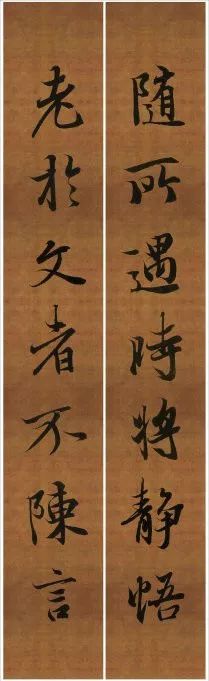 随所遇時将静悟
老於文者不陳言